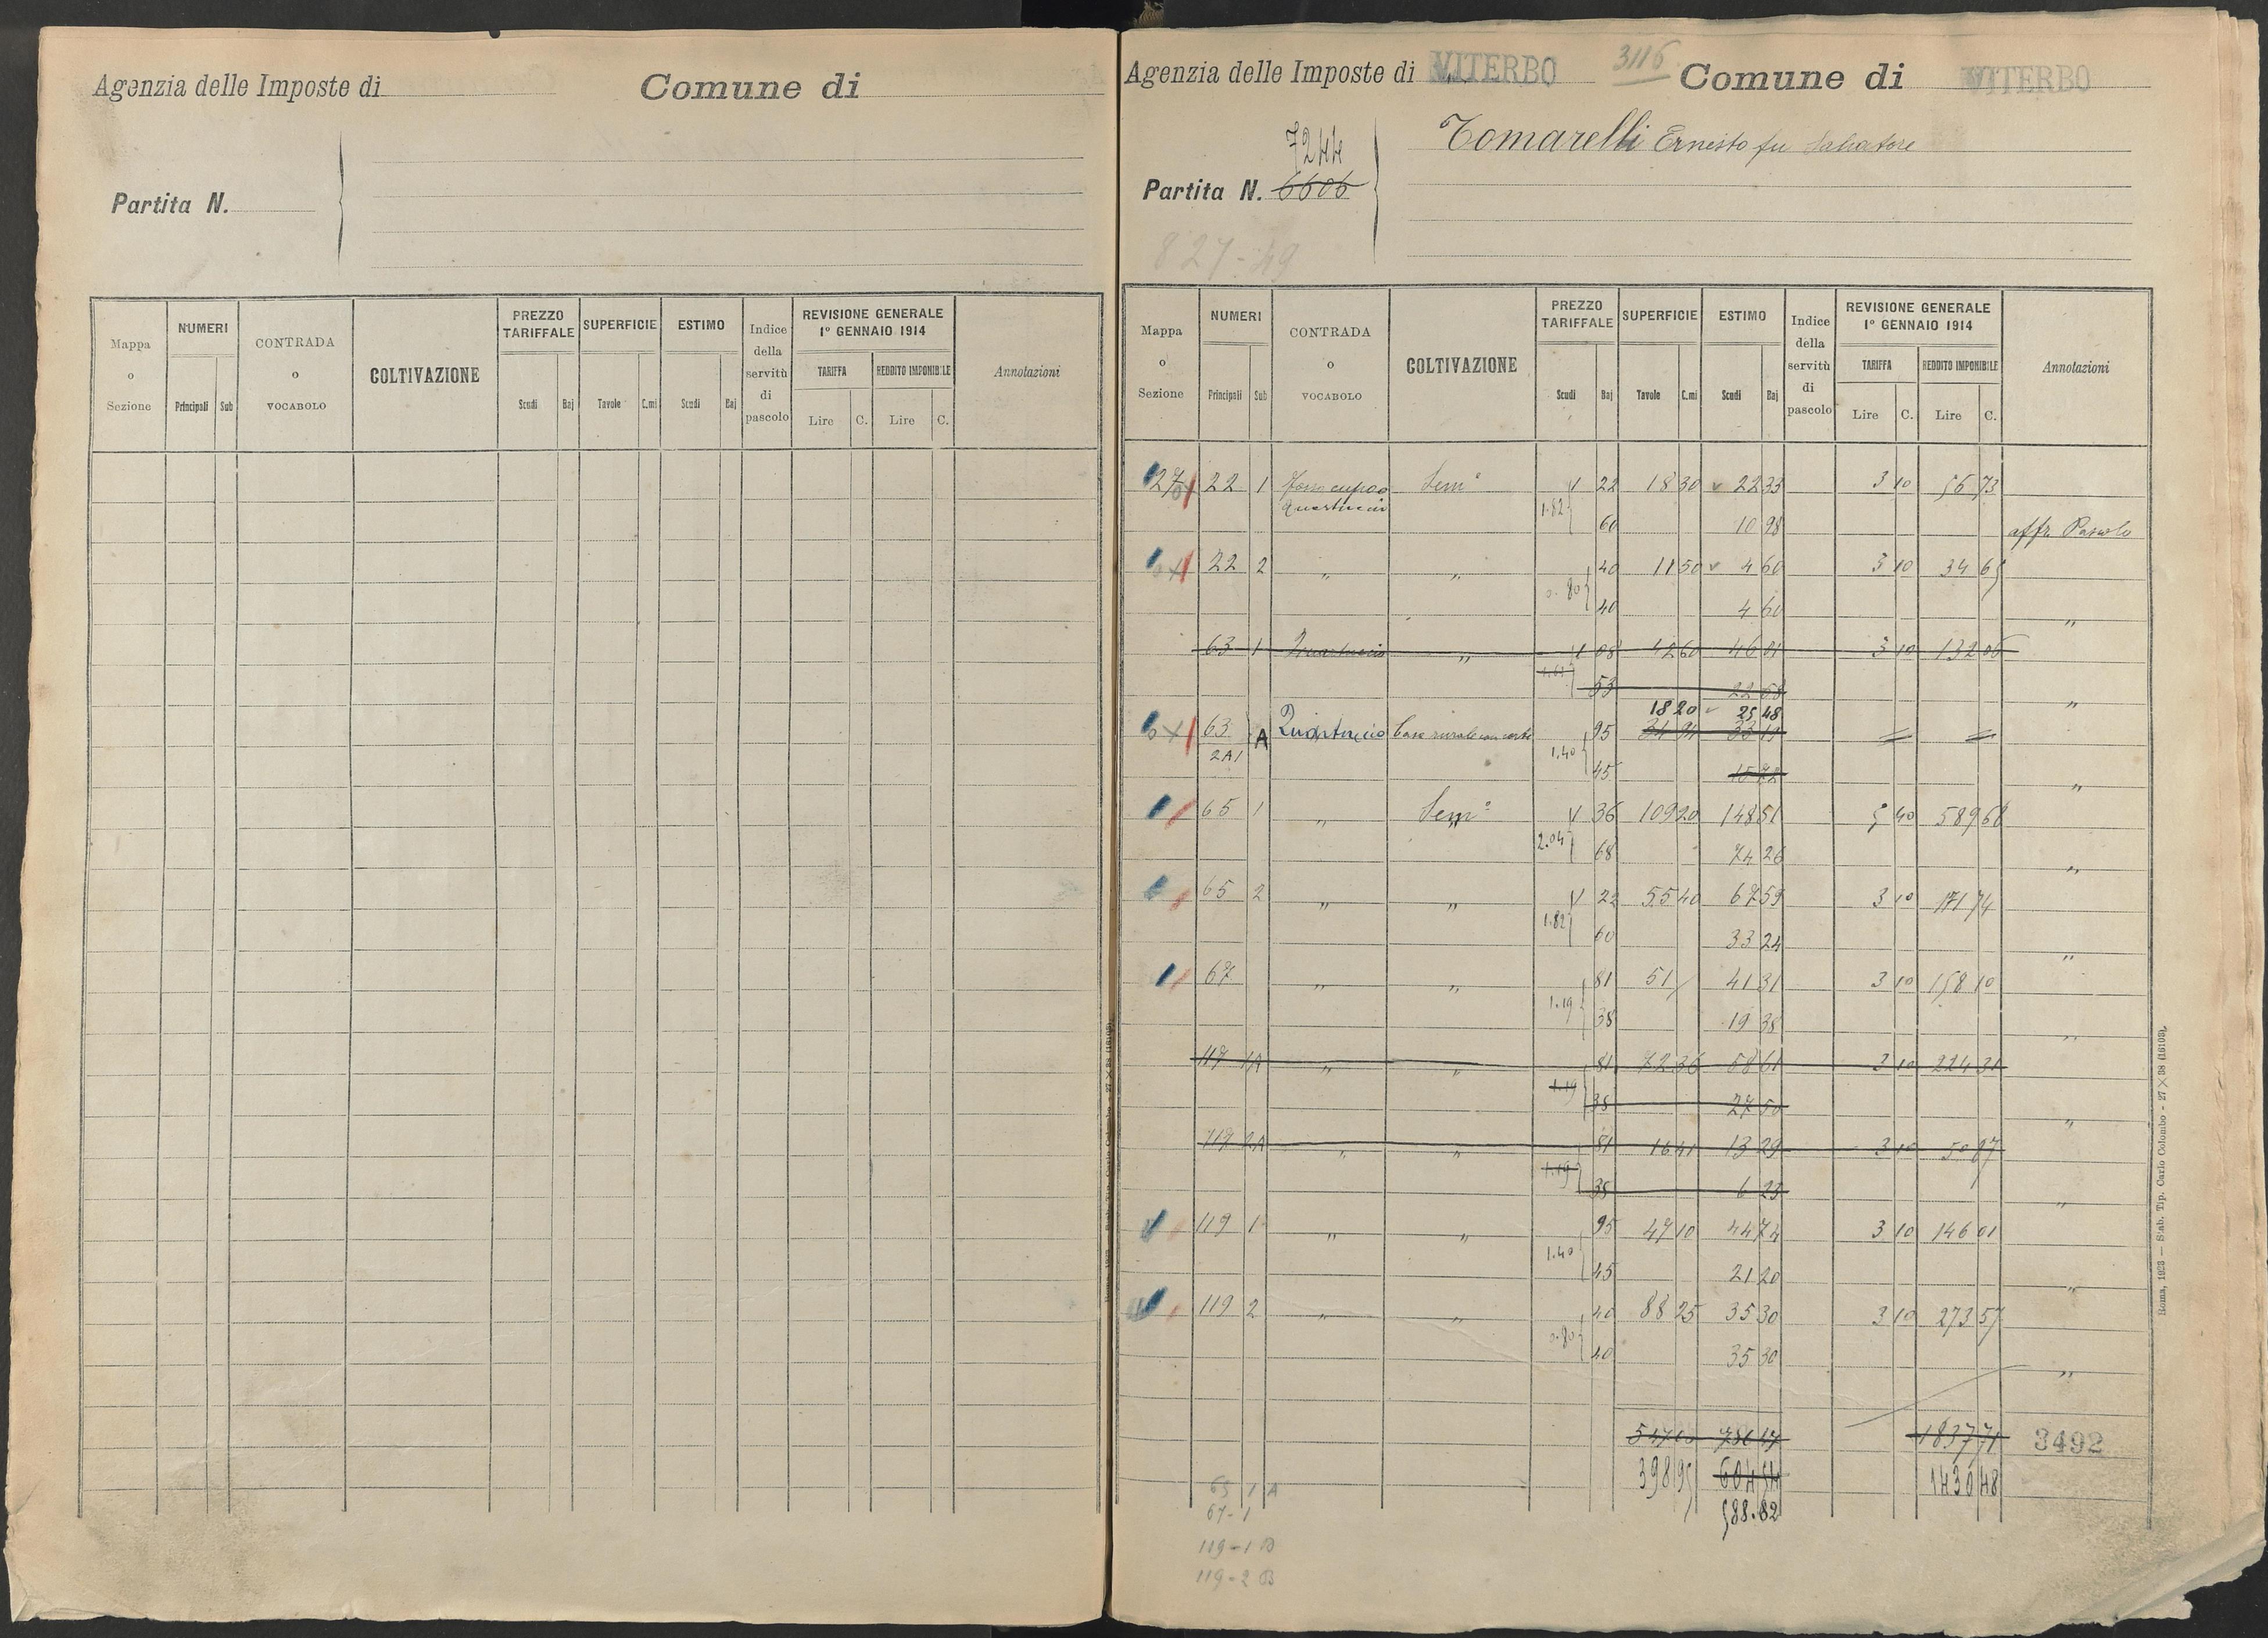 Agenzia delle Imposte di
Comune di
Partita N.
Mappa o Sezione
NUMERI
Principali Sub
CONTRADA o VOCABOLO
COLTIVAZIONE
PREZZO TARIFFALE
Scudi Baj
SUPERFICIE
Tavole C.mi
ESTIMO
Scudi Baj
Indice della servitù di pascolo
REVISIONE GENERALE
1° GENNAIO 1914
TARIFFA REDDITO IMPONIBILE
Lire C. Lire C.
Annotazioni
Agenzia delle Imposte di VITERBO 3116 Comune di VITERBO
7244
Partita N. 6606
Tomarelli Ernesto fu Salvatore
827-49
Mappa o Sezione
NUMERI
Principali Sub
CONTRADA o VOCABOLO
COLTIVAZIONE
PREZZO TARIFFALE
Scudi Baj
SUPERFICIE
Tavole C.mi
ESTIMO
Scudi Baj
Indice della servitù di pascolo
REVISIONE GENERALE
1° GENNAIO 1914
TARIFFA REDDITO IMPONIBILE
Lire C. Lire C.
Annotazioni
27 22 1 Sem° 1 22 18 30 22 33 3 10 56 73
1.82 60 10 98 affr. Pascolo
22 2 " " 40 11 50 4 60 3 10 34 65
0.80 40 4 60 "
63 1 Quartuccio " 1 08 42 60 46 01 3 10 132 06
53 22 58 "
18 20 25 48
63 A Quartuccio Casa rurale con corte 95 34 94 33 19 = =
2A1 1.40 45 15 72 "
65 1 " Sem° 1 36 109 20 148 51 5 40 589 68
2.04 68 74 26 "
65 2 " " 1 22 55 40 67 59 3 10 171 74
1.82 60 33 24 "
67 " " 81 51 / 41 31 3 10 158 10
1.19 38 19 38 "
117 1A " " 81 72 36 58 61 3 10 224 31
1.19 38 27 50 "
117 2A " " 81 16 41 13 29 3 10 50 87
1.19 38 6 23 "
119 1 " " 95 47 10 44 74 3 10 146 01
1.40 45 21 20 "
119 2 " " 40 88 25 35 30 3 10 273 57
0.80 40 35 30 "
1837 71 3492
398 95 604 54 1430 48
588.82
65 1 A
67-1
119-1 B
119-2 B
Roma, 1923 — Stab. Tip. Carlo Colombo - 27 × 38 (16103).